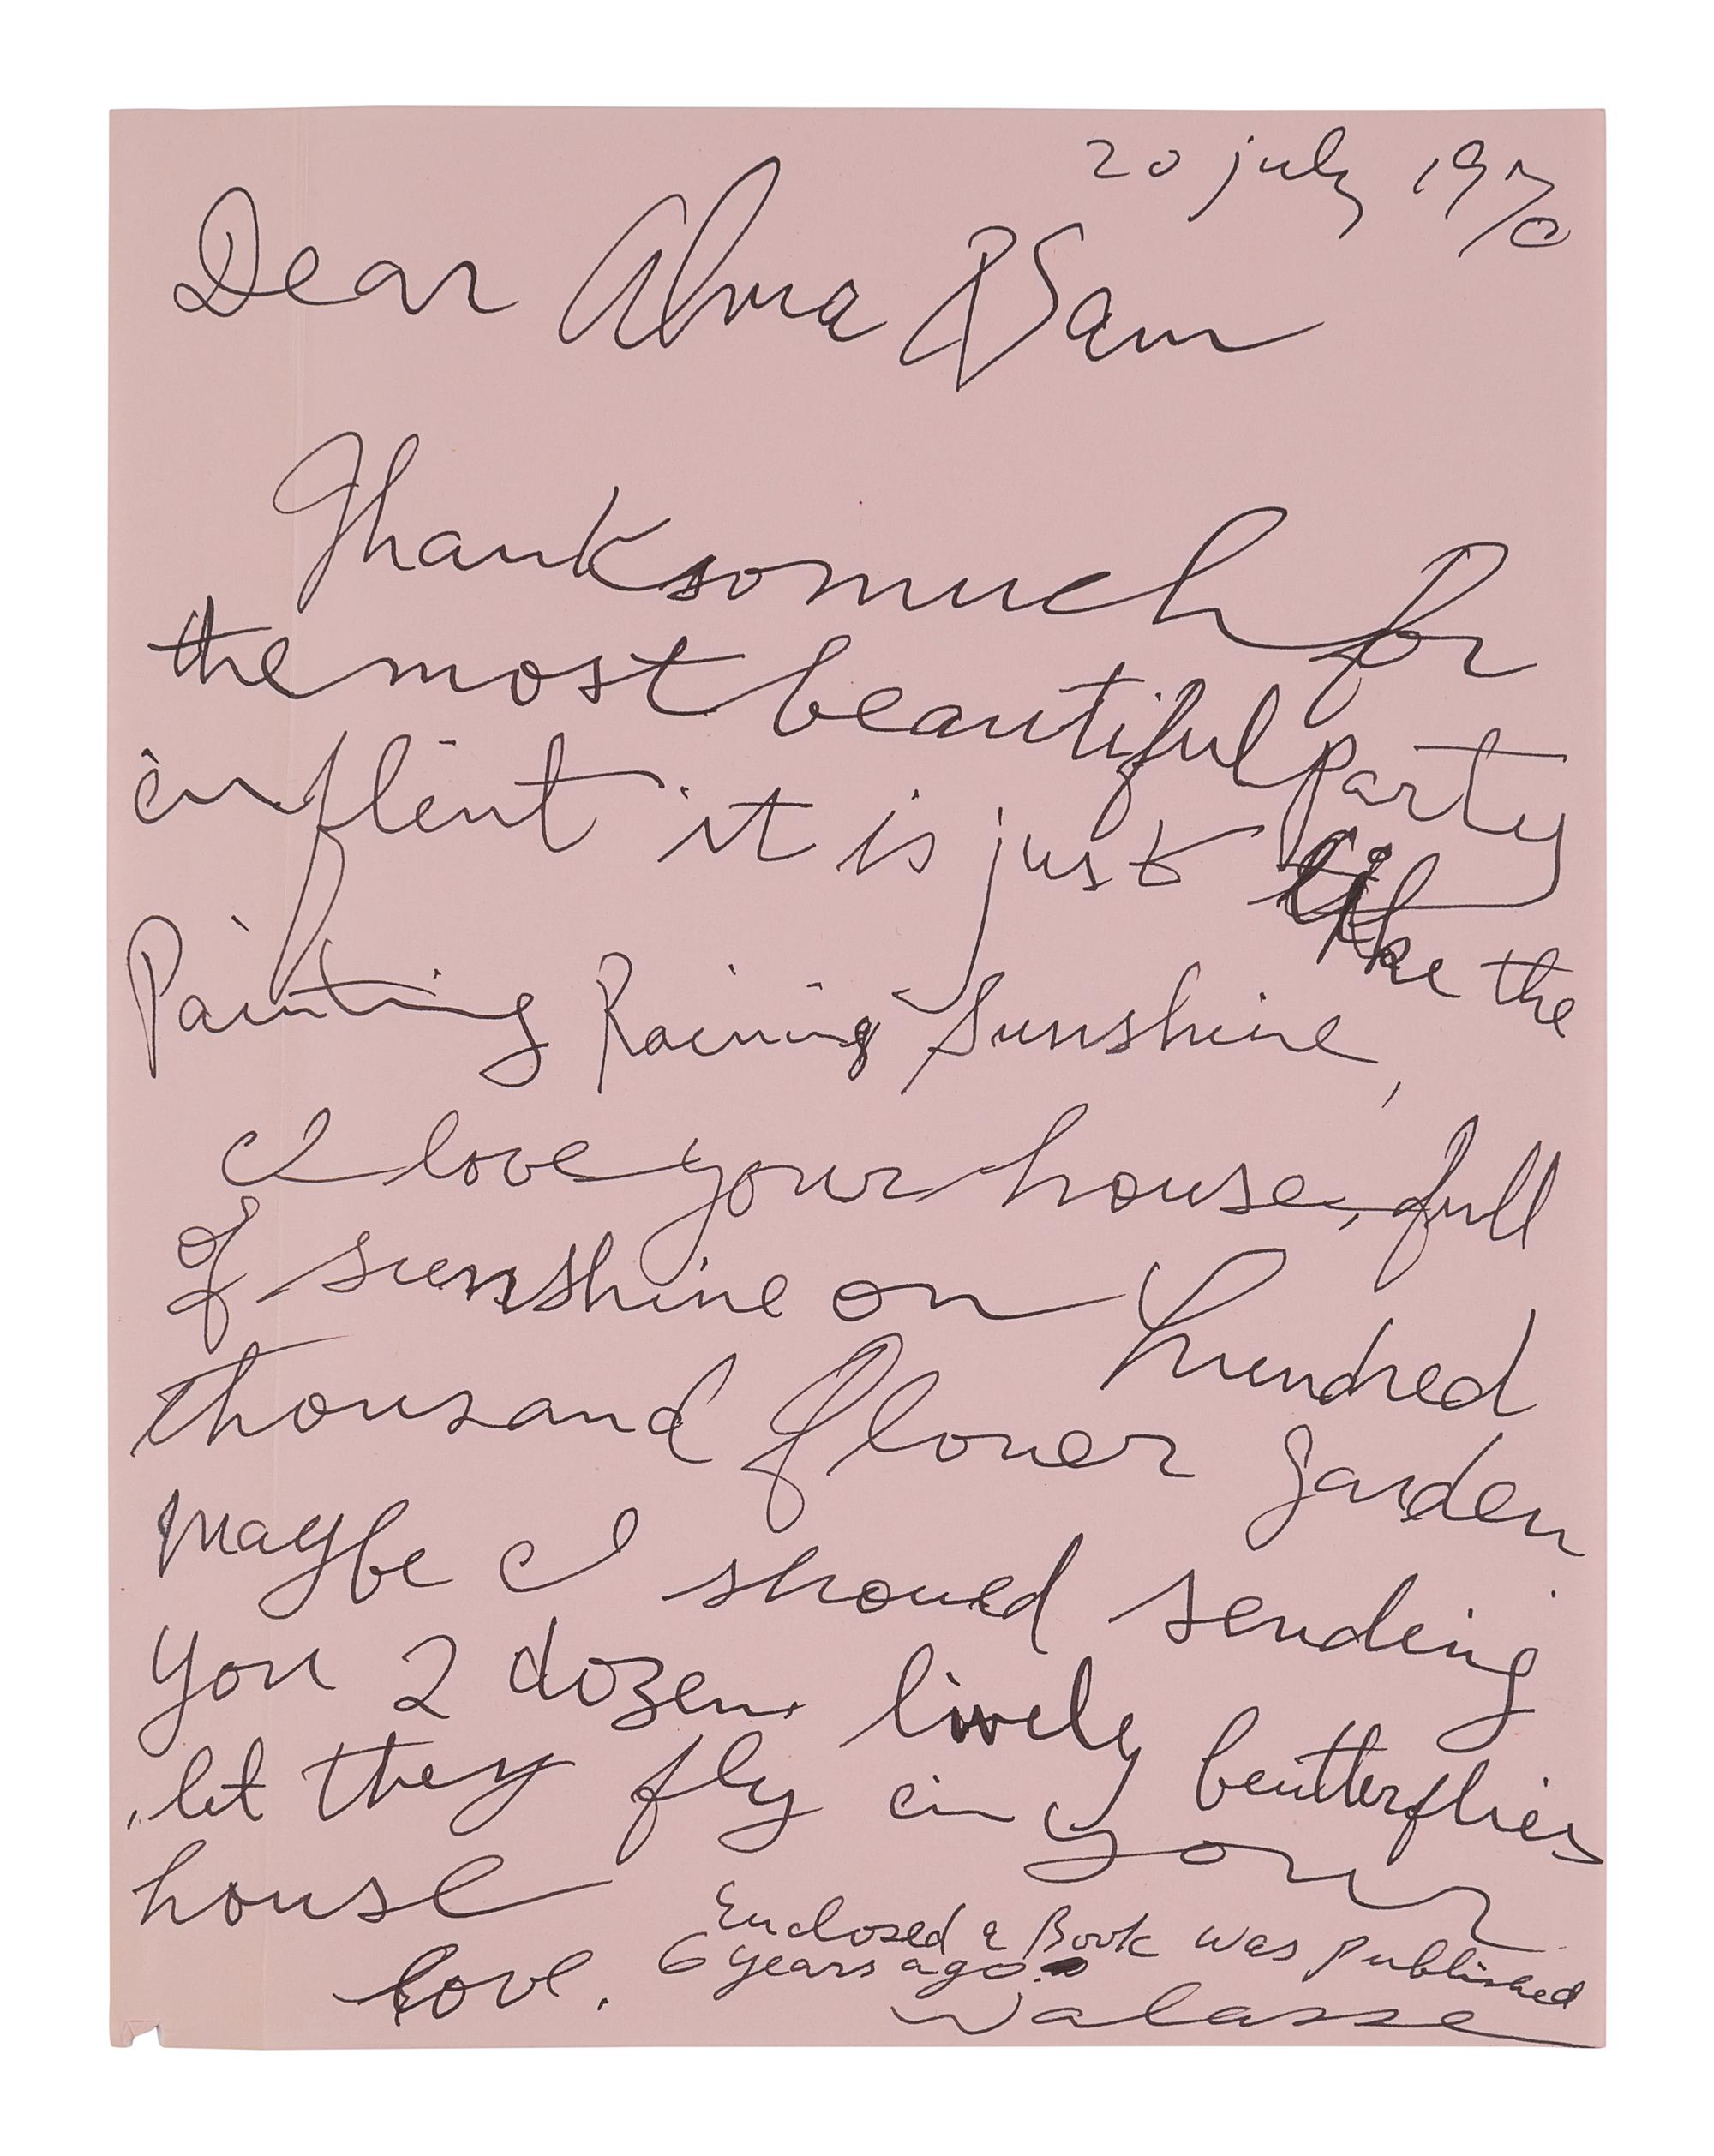 20 july 1970
Dear Alma & Sam
Thank so much for
the most beautiful party
in flint it is just like the
Painting Raining Sunshine,
I love your house, full
of sunshine on hundred
thousand flower garden
maybe I should sending
you 2 dozen lively beutterflies
, let they fly in your
house
Enclosed a Book was published
6 years ago
love.
Walasse